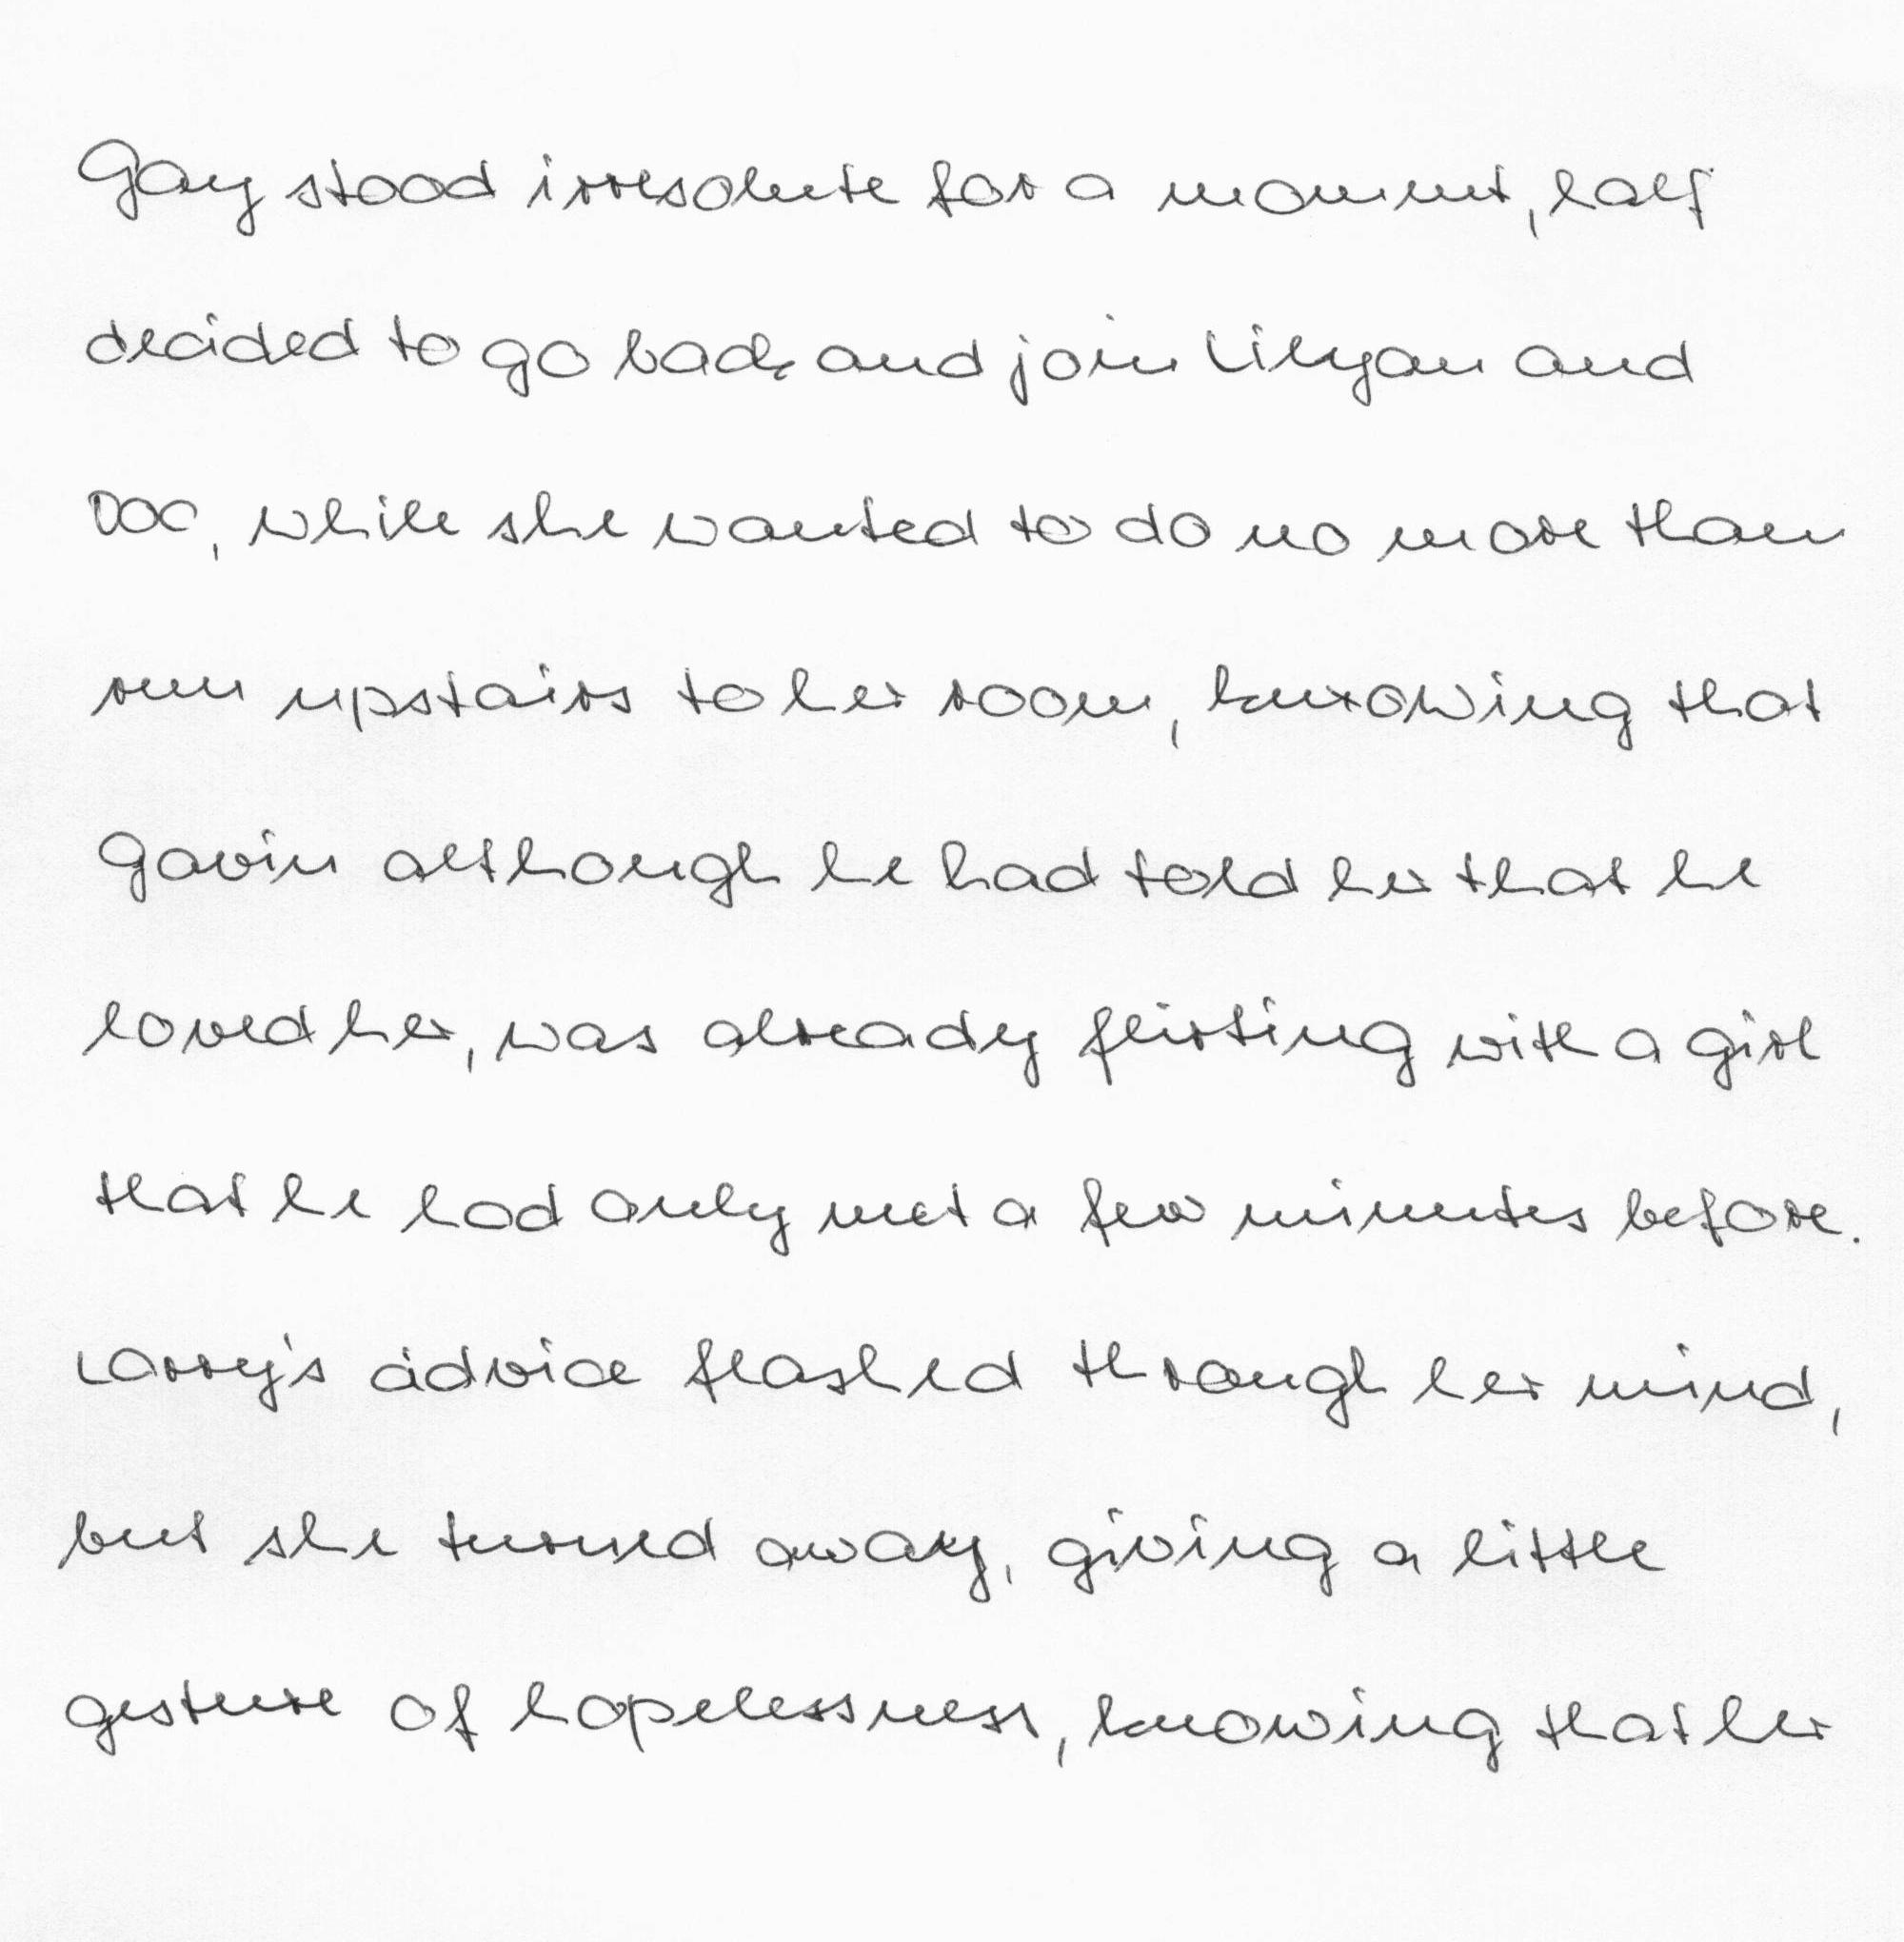 Gay stood irresolute for a moment, half
decided to go back and join Lilyan and
Doc, while she wanted to do no more than
run upstairs to her room, knowing that
Gavin although he had told her that he
loved her, was already flirting with a girl
that he had only met a few minutes before.
Larry's advice flashed through her mind,
but she turned away, giving a little
gesture of hopelessness, knowing that her